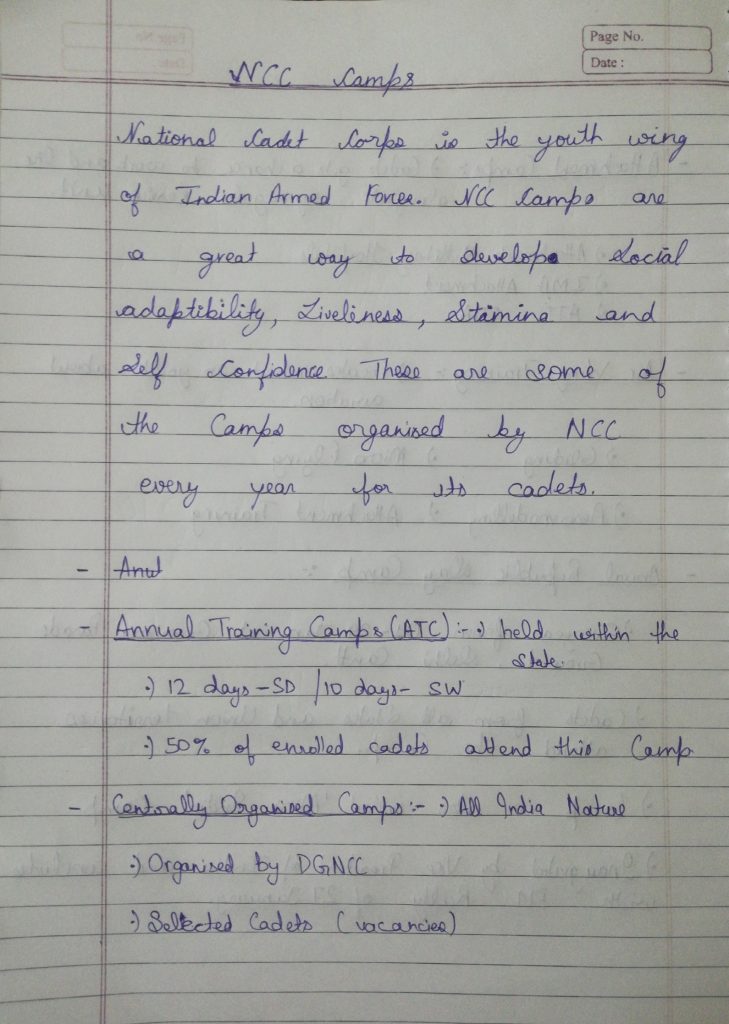 Page No.
Date :
NCC Camps
National Cadet Corps is the youth wing
of Indian Armed Forces. NCC Camps are
a great way to develop Social
adaptibility, Liveliness, Stamina and
Self Confidence. These are some of
the Camps organised by NCC
every year for its cadets.
-
- Annual Training Camps (ATC) :- •) held within the
State.
•) 12 days - SD / 10 days - SW
•) 50% of enrolled cadets attend this Camp
- Centrally Organised Camps :- •) All India Nature
•) Organised by DGNCC
•) Selected Cadets (vacancies)